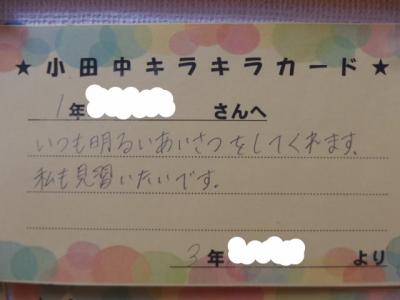 ★小田中キラキラカード★
1年 さんへ
いつも明るいあいさつをしてくれます。
私も見習いたいです。
3年 より